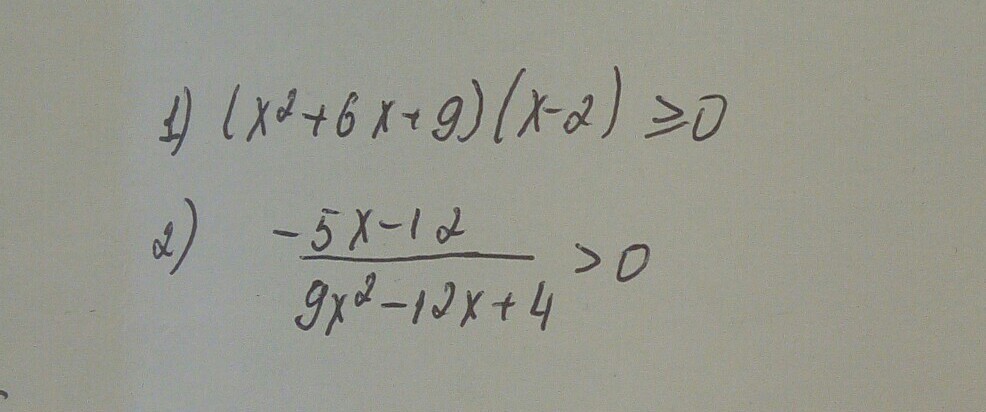 1) (x²+6x+9)(x-2) ≥0
2) -5x-12
9x²-12x+4 >0